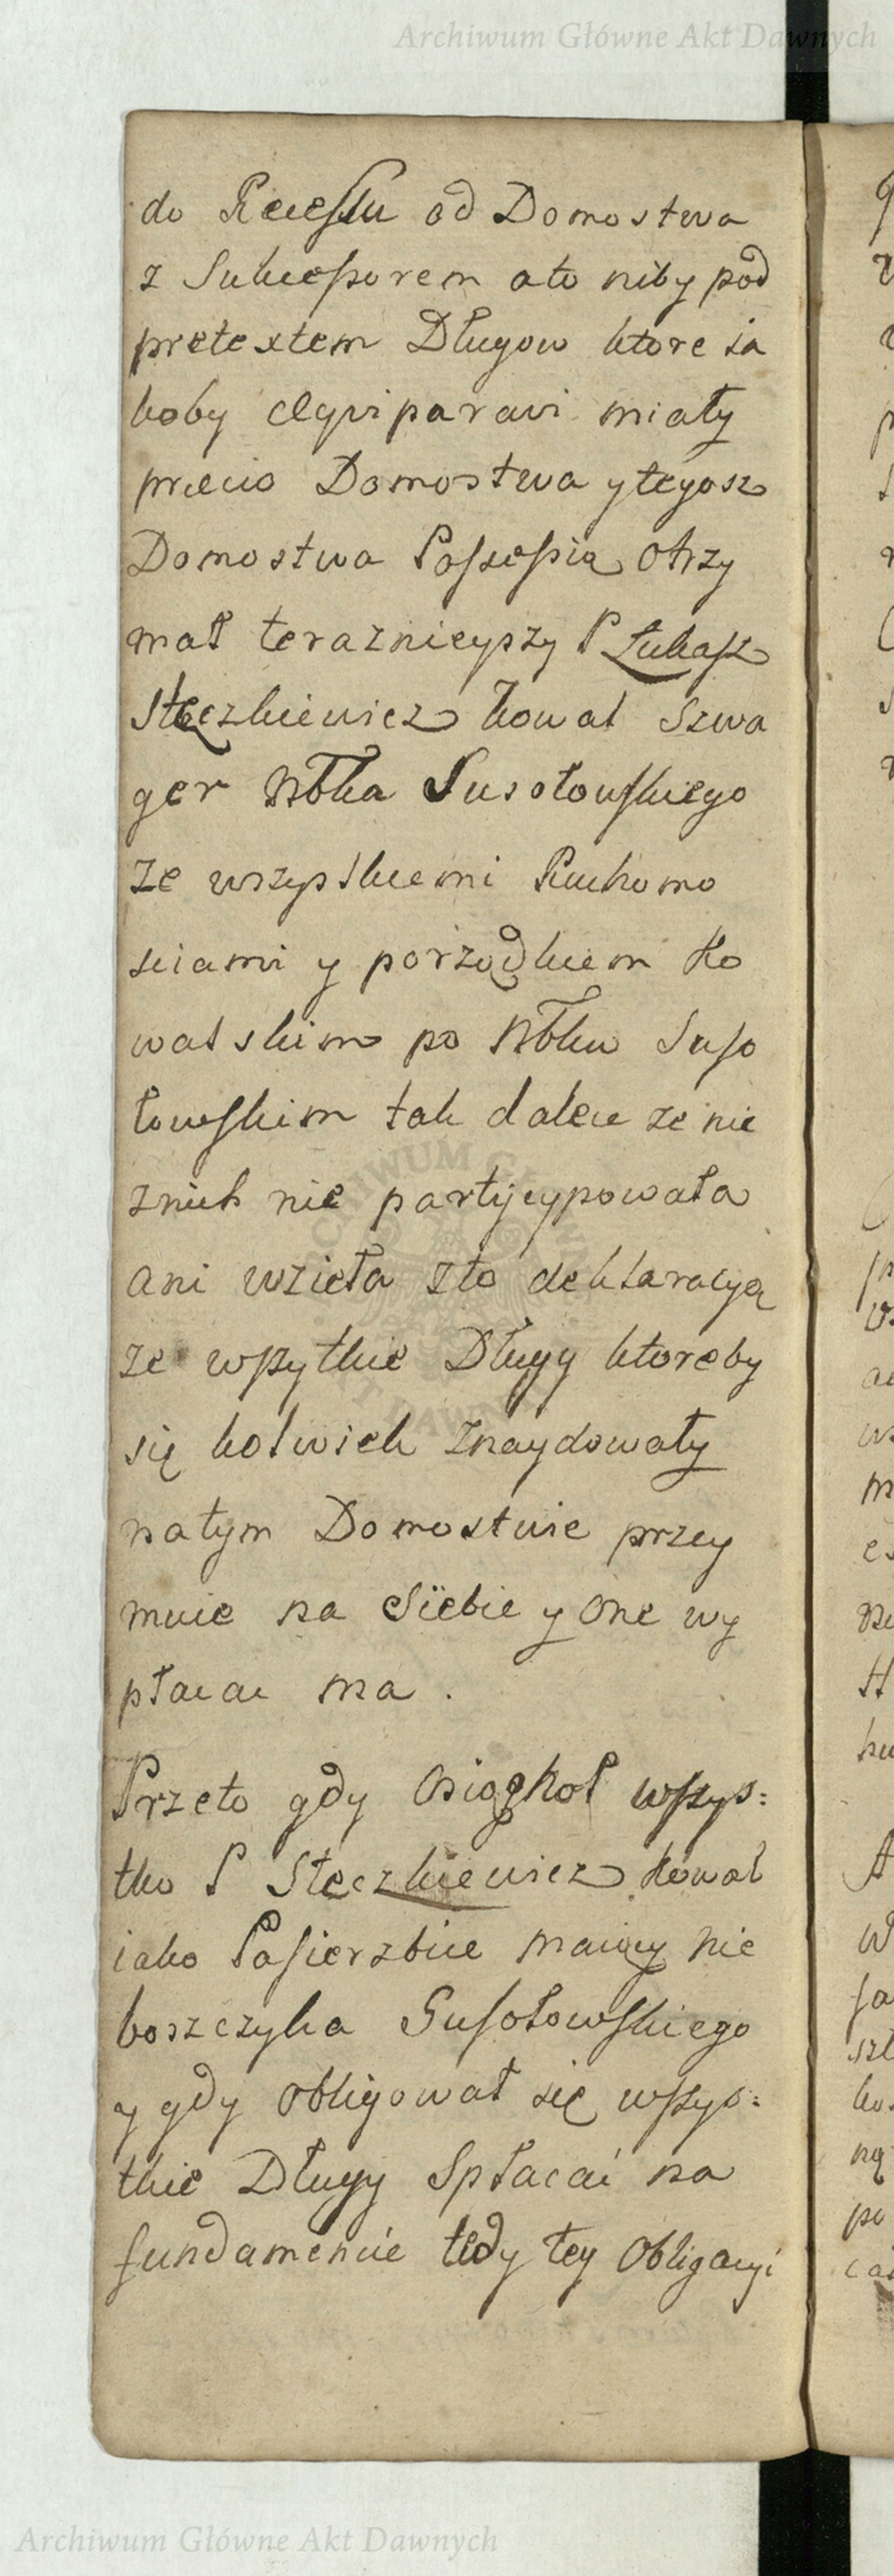 Archiwum Główne Akt Dawnych
do Recessu od Domostwa
z Sukcessorem ato niby pod
pretextem Długow ktore ia
koby æquiparari miały
precio Domostwa y tegosz
Domostwa Possessią otrzy
mał teraznieyszy P Łukasz
Stęczkiewicz kowal Szwa
ger Nbka Susołowskiego
ze wszystkiemi Ruchomo
sciami y porządkiem Ko
walskim po Nbku Suso
łowskim tak dalece ze nic
znich nie partycypowała
ani wzieła zto deklaracyą
ze wszytkie Długy ktoreby
się kolwiek znaydowały
natym Domostwie przey
muie na Siebie y one wy
płacac ma .
Przeto gdy osiągnoł wszys:
tko P Stęczkiewicz kowal
iako Pasierzbice maiący nie
boszczyka Susołowskiego
y gdy obligował się wszys:
tkie Długy Spłacać na
fundamencie tedy tey obligacyi
Archiwum Główne Akt Dawnych